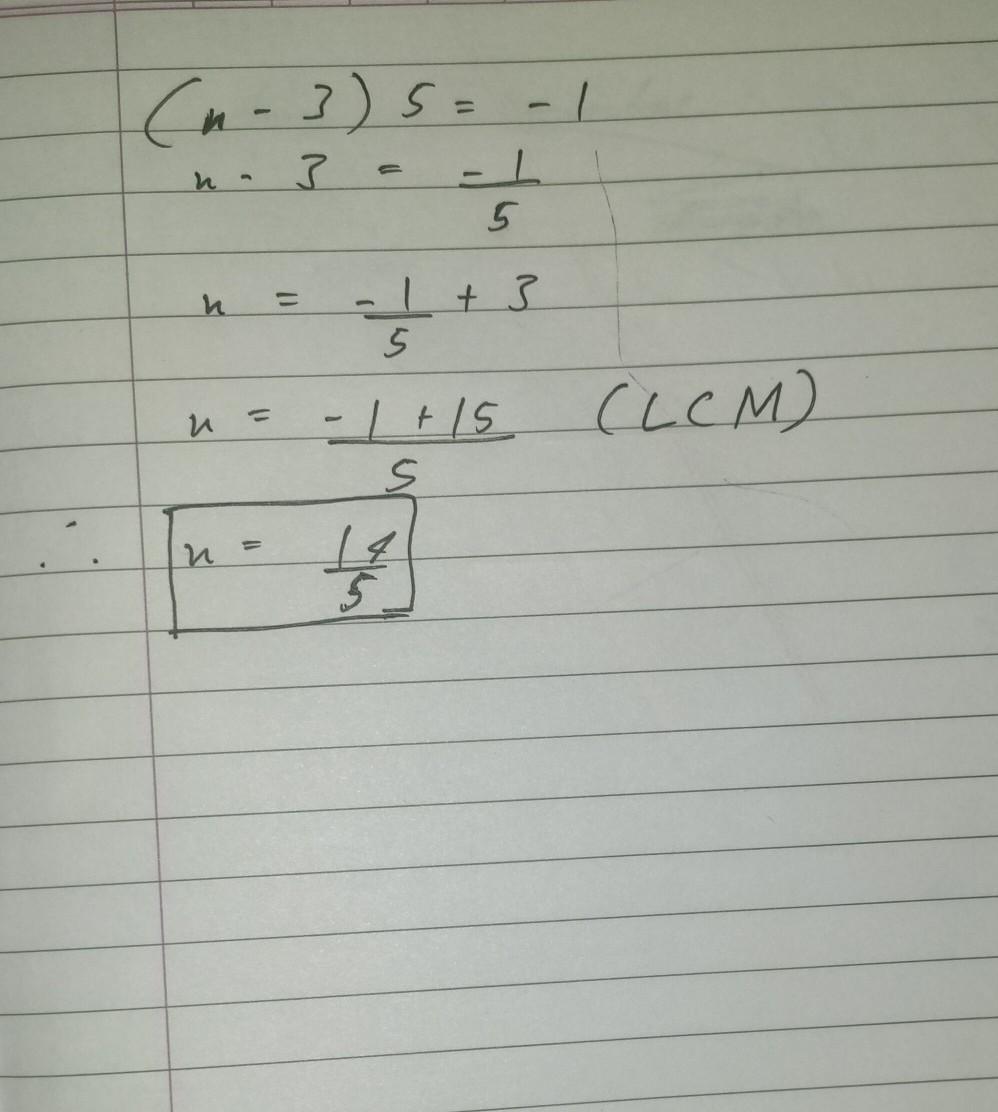 (n - 3) 5 = -1
n - 3 = -1/5
n = -1/5 + 3
n = -1 + 15/5 (LCM)
∴ n = 14/5